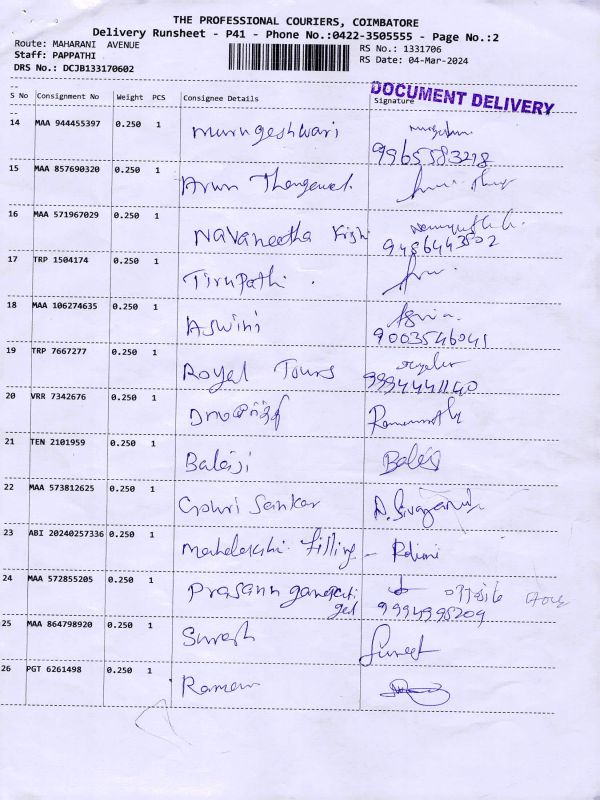 THE PROFESSIONAL COURIERS, COIMBATORE
Delivery Runsheet - P41 - Phone No.:0422-3505555 - Page No.:2
Route: MAHARANI AVENUE RS No.: 1331706
Staff: PAPPATHI RS Date: 04-Mar-2024
DRS No.: DCJB133170602
DOCUMENT DELIVERY
S No Consignment No Weight PCS Consignee Details Signature
14 MAA 944455397 0.250 1 Murugeshwari
9965583278
15 MAA 857690320 0.250 1 Arun Thangavel.
16 MAA 571967029 0.250 1 Navaneetha Krish
9486443502
17 TRP 1504174 0.250 1 Tirupathi.
18 MAA 106274635 0.250 1 Aswini
9003546041
19 TRP 7667277 0.250 1 Royal Tours
9994441140
20 VRR 7342676 0.250 1
21 TEN 2101959 0.250 1 Balaji Balaji
22 MAA 573812625 0.250 1 Gowri Sankar
23 ABI 20240257336 0.250 1 Mahalakshi filling -
24 MAA 572855205 0.250 1 Prasann ganapati opposite
9994998209
25 MAA 864798920 0.250 1 Suresh Suresh
26 PGT 6261498 0.250 1 Raman